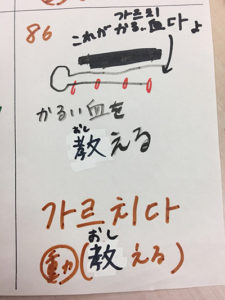 86
가르치
これがかるい血다よ
かるい血を
おし
教える
가르치다
動(教える)
おし